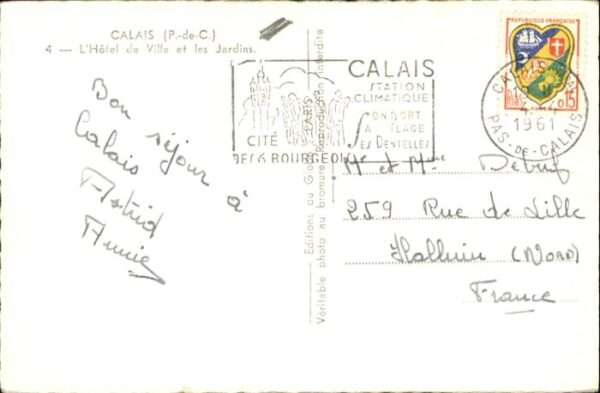 CALAIS (P.-de-C.)
4 — L'Hôtel de Ville et les Jardins.
Bon séjour à
Calais
Astrid
Annie
Editions du
Véritable photo au bromure - Reproduction interdite
CITÉ
DES 6 BOURGEOIS
CALAIS
STATION
CLIMATIQUE
SON PORT
SA PLAGE
SES DENTELLES
REPUBLIQUE FRANÇAISE
0,15
CALAIS
1961
PAS-DE-CALAIS
Mr et Mme Debuf
259 Rue de Lille
Halluin (Nord)
France